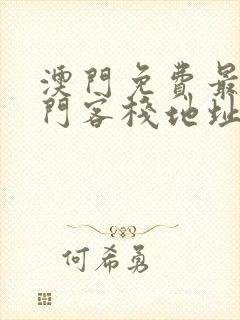 澳門免費最
門客棧地址
何希勇